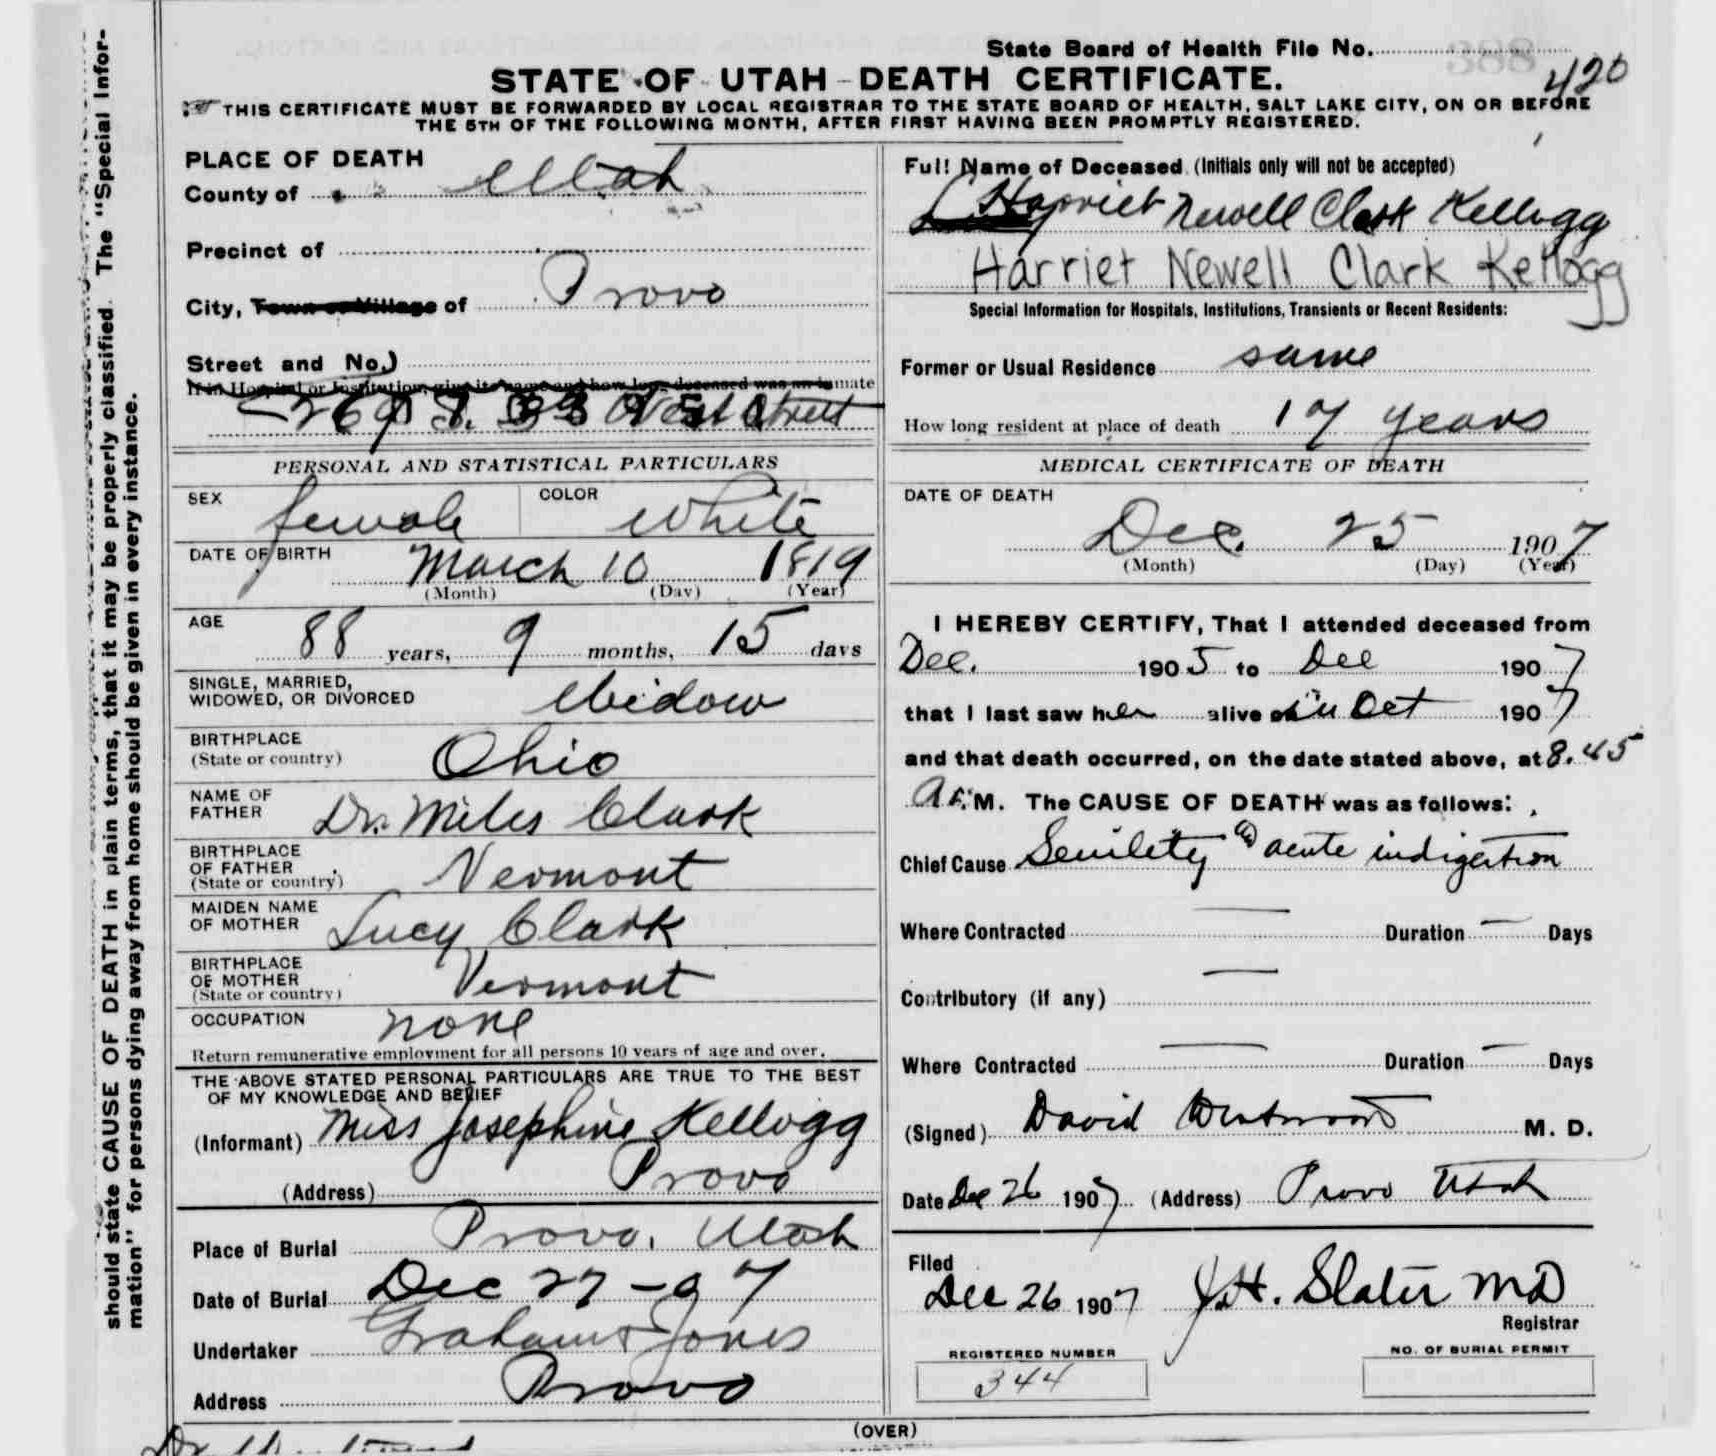 State Board of Health File No.
420
STATE OF UTAH - DEATH CERTIFICATE.
THIS CERTIFICATE MUST BE FORWARDED BY LOCAL REGISTRAR TO THE STATE BOARD OF HEALTH, SALT LAKE CITY, ON OR BEFORE
THE 5TH OF THE FOLLOWING MONTH, AFTER FIRST HAVING BEEN PROMPTLY REGISTERED.
should state CAUSE OF DEATH in plain terms, that it may be properly classified. The "Special Infor-
mation" for persons dying away from home should be given in every instance.
PLACE OF DEATH
County of Utah
Precinct of
City, Town or Village of Provo
Street and No.)
If in Hospital or Institution, give its name and how long deceased was an inmate
West Street
PERSONAL AND STATISTICAL PARTICULARS
SEX female COLOR White
DATE OF BIRTH March 10 1819
(Month) (Day) (Year)
AGE 88 years, 9 months, 15 days
SINGLE, MARRIED,
WIDOWED, OR DIVORCED Widow
BIRTHPLACE
(State or country) Ohio
NAME OF
FATHER Dr. Miles Clark
BIRTHPLACE
OF FATHER
(State or country) Vermont
MAIDEN NAME
OF MOTHER Lucy Clark
BIRTHPLACE
OF MOTHER
(State or country) Vermont
OCCUPATION none
Return remunerative employment for all persons 10 years of age and over.
THE ABOVE STATED PERSONAL PARTICULARS ARE TRUE TO THE BEST
OF MY KNOWLEDGE AND BELIEF
(Informant) Miss Josephine Kellogg
(Address) Provo
Place of Burial Provo, Utah
Date of Burial Dec 27 - 07
Undertaker Graham & Jones
Address Provo
Full Name of Deceased (Initials only will not be accepted)
Harriet Newell Clark Kellogg
Harriet Newell Clark Kellogg
Special Information for Hospitals, Institutions, Transients or Recent Residents:
Former or Usual Residence same
How long resident at place of death 17 years
MEDICAL CERTIFICATE OF DEATH
DATE OF DEATH
Dec. 25 1907
(Month) (Day) (Year)
I HEREBY CERTIFY, That I attended deceased from
Dec. 1905 to Dec 1907
that I last saw her alive in Oct 1907
and that death occurred, on the date stated above, at 8.45
A. M. The CAUSE OF DEATH was as follows:
Chief Cause Senilety & acute indigestion
Where Contracted — Duration — Days
Contributory (if any) —
Where Contracted — Duration — Days
(Signed) David Westwood M. D.
Date Dec 26 1907 (Address) Provo Utah
Filed
Dec 26 1907 J. H. Slater MD
Registrar
REGISTERED NUMBER
344
NO. OF BURIAL PERMIT
(OVER)